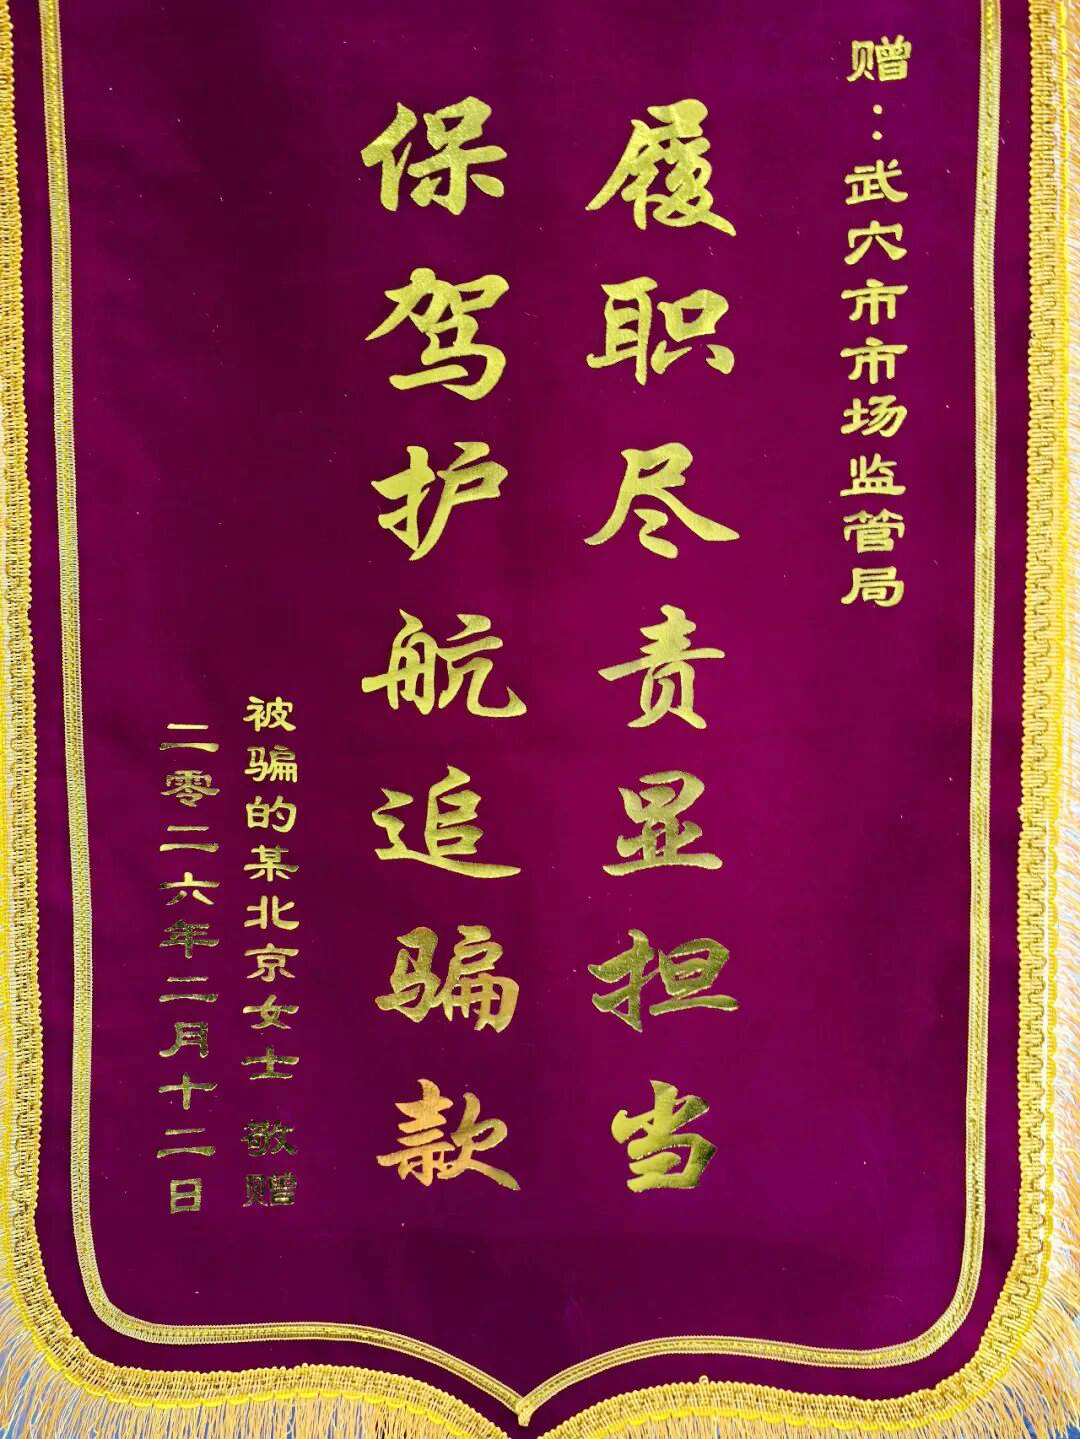 赠：武穴市市场监管局
履职尽责显担当
保驾护航追骗款
被骗的某北京女士 敬赠
二零二六年二月十二日